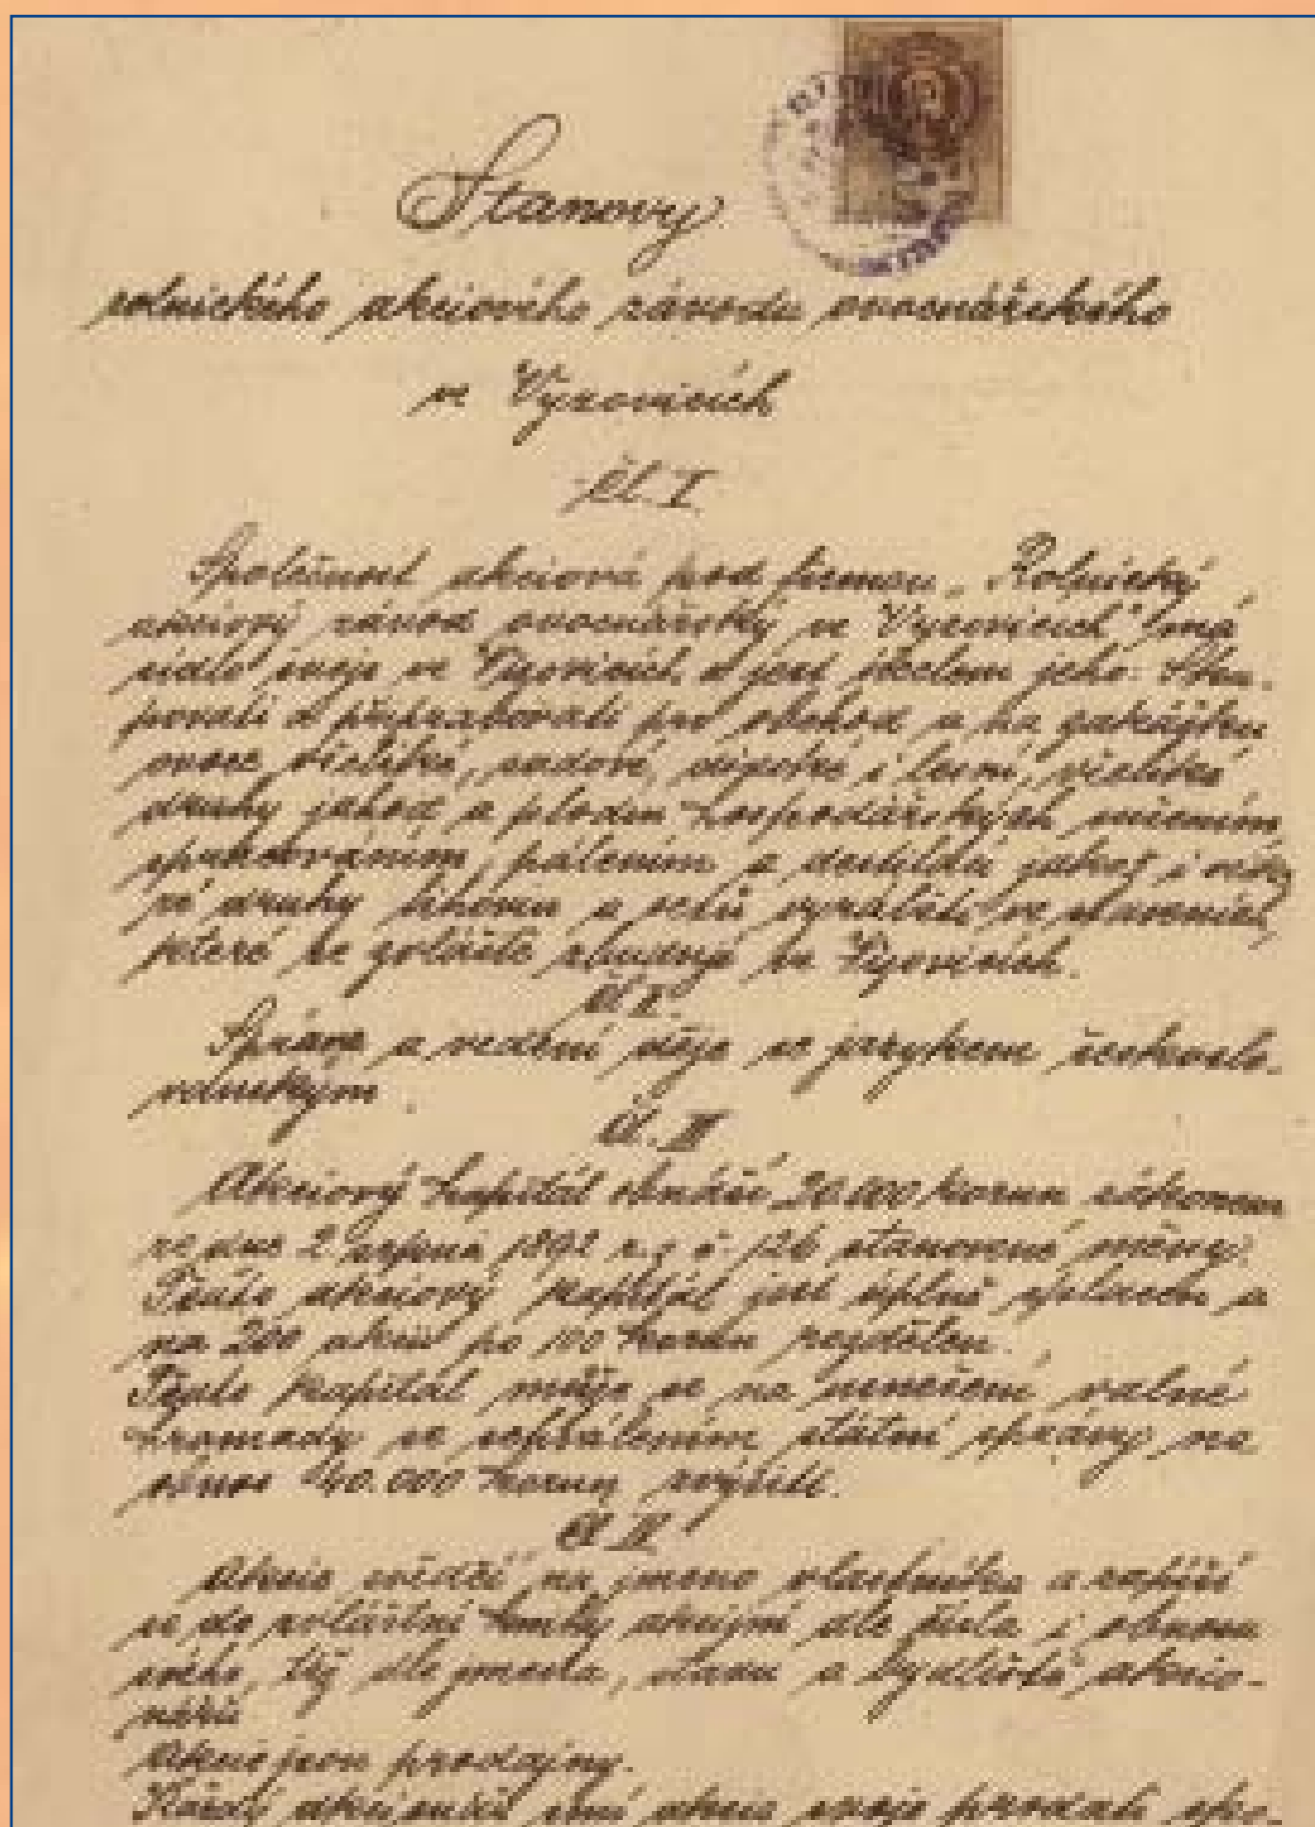 Stanovy
rolnického akciového závodu ovocnářského
ve Vyzovicích
Čl. I.
Společnost akciová pod firmou „Rolnický
akciový závod ovocnářský ve Vyzovicích“ má
sídlo svoje ve Vyzovicích a jest účelem jeho: Sku-
povati a připravovati pro obchod a na
ovoce všeliké, sadové, i lesní, všeliké
druhy jahod a plodin hospodářských sušením,
pálením a jakož i
ré druhy lihovin a octů vyráběti ve staveních,
které se zvláště zbudují ve Vyzovicích.
Čl. II.
Správa a vedení děje se jazykem českoslo-
vanským.
Čl. III
Akciový kapitál obnáší 20.000 korun zákonem
ze dne 2 srpna 1892 ř. z. č. 126 stanovené měny.
Tento akciový kapitál jest úplně splacen a
na 200 akcií po 100 korun rozdělen.
Tento kapitál může se na usnešení valné
hromady se schválením státní správy na
obnos 40.000 korun zvýšiti.
Čl. IV
Akcie svědčí na jméno vlastníka a zapíší
se do zvláštní knihy akcijní dle čísla i obnosu
svého, též dle jmena, stavu a bydliště akcio-
nářů.
Akcie jsou prodajny.
Každý akcionář smí akcie svoje prodati